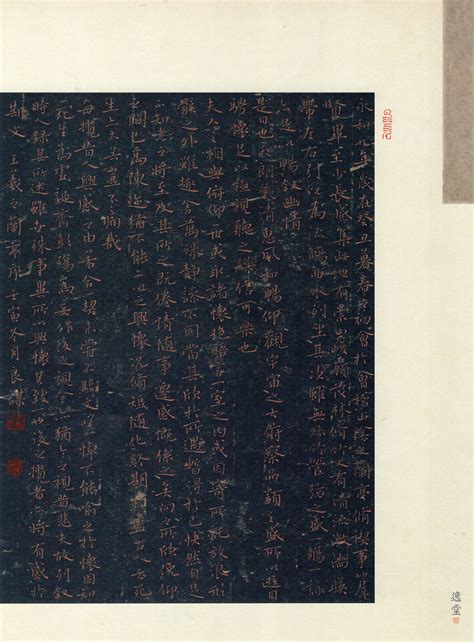 永和九年歲在癸丑暮春之初會于會稽山陰之蘭亭脩禊事也羣
賢畢至少長咸集此地有崇山峻領茂林脩竹又有清流激湍暎
帶左右引以為流觴曲水列坐其次雖無絲竹管弦之盛一觴一詠
亦足以暢敘幽情
是日也天朗氣清惠風和暢仰觀宇宙之大俯察品類之盛所以遊目
騁懷足以極視聽之娛信可樂也
夫人之相與俯仰一世或取諸懷抱悟言一室之內或因寄所託放浪形
骸之外雖趣舍萬殊靜躁不同當其欣於所遇暫得於己快然自足
不知老之將至及其所之既惓情隨事遷感慨係之矣向之所欣俛仰
之間已為陳迹猶不能不以之興懷況脩短隨化終期於盡古人云死
生亦大矣豈不痛哉
每攬昔人興感之由若合一契未嘗不臨文嗟悼不能喻之於懷固知
一死生為虛誕齊彭殤為妄作後之視今亦猶今之視昔悲夫故列敘
時人錄其所述雖世殊事異所以興懷其致一也後之攬者亦將有感於
斯文 王羲之蘭亭序 壬寅冬月良
逸堂